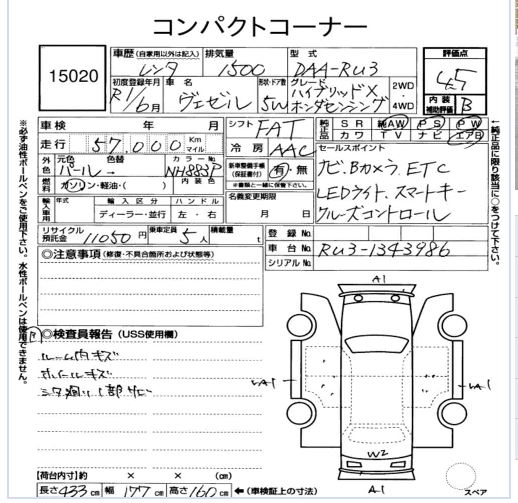 コンパクトコーナー
15020
車歴 (自家用以外は記入) レンタ
排気量 1500
型式 DAA-RU3
評価点 4.5
初度登録年月 R1/6月
車名 ヴェゼル
形状・ドア数 5W
グレード ハイブリッドX ホンダセンシング
2WD
4WD
内装補助評価 B
車検 年 月
シフト FAT
純正品 SR 純AW PS PW
カワ TV ナビ エアB
走行 57,000 Km マイル
冷房 AAC
外色 元色 パール 色替 カラーNo NH883P
燃料 ガソリン・軽油・( ) 内装色
新車整備手帳(保証書付) 有・無
※書類と一緒に保管下さい。
セールスポイント
ナビ.Bカメラ.ETC
LEDライト.スマートキー
クルーズコントロール
輸入車用 年式 輸入区分 ハンドル
ディーラー・並行 左・右
名義変更期限
月 日
リサイクル預託金 11050円
乗車定員 5人
積載量 t
登録No
車台No. RU3-1343986
シリアルNo
◎注意事項 (修復・不具合箇所および状態等)
◎検査員報告 (USS使用欄)
ルーム内キズ
A1
A1
A1
W2
A-1
スペア
【荷台内寸】約 × × (cm)
長さ433cm 幅177cm 高さ160cm ←(車検証上の寸法)
※必ず油性ボールペンをご使用下さい。水性ボールペンは使用できません。
←純正品に限り該当に○をつけて下さい。